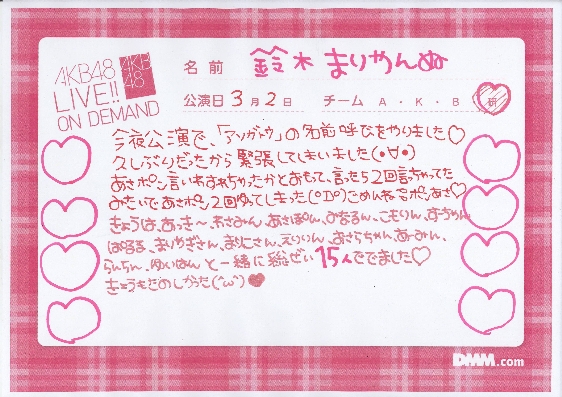 AKB48
LIVE!!
ON DEMAND
AKB
48
名前 鈴木まりやんぬ
公演日 3月2日 チーム A・K・B 研
今夜公演で、「アンガトゥ」の名前呼びをやりました♡
久しぶりだったから緊張してしまいました(・∀・)
あさポン言いわすれちゃったかとおもって、言ったら2回言ちゃってた
みたいであさポン2回ゆってしまった(°Д°)ごめんねポンあさ♡
きょうは、あっきー、わさみん、あさぽん、なるん、こもりん、すーちゃん
はるる、まりやぎさん、まりこさん、えりりん、おさらちゃん、あーみん、
らんらん、ゆいはんと一緒に総ぜい15人ででました♡
きょうもたのしかった(^ω^)♥
DMM.com